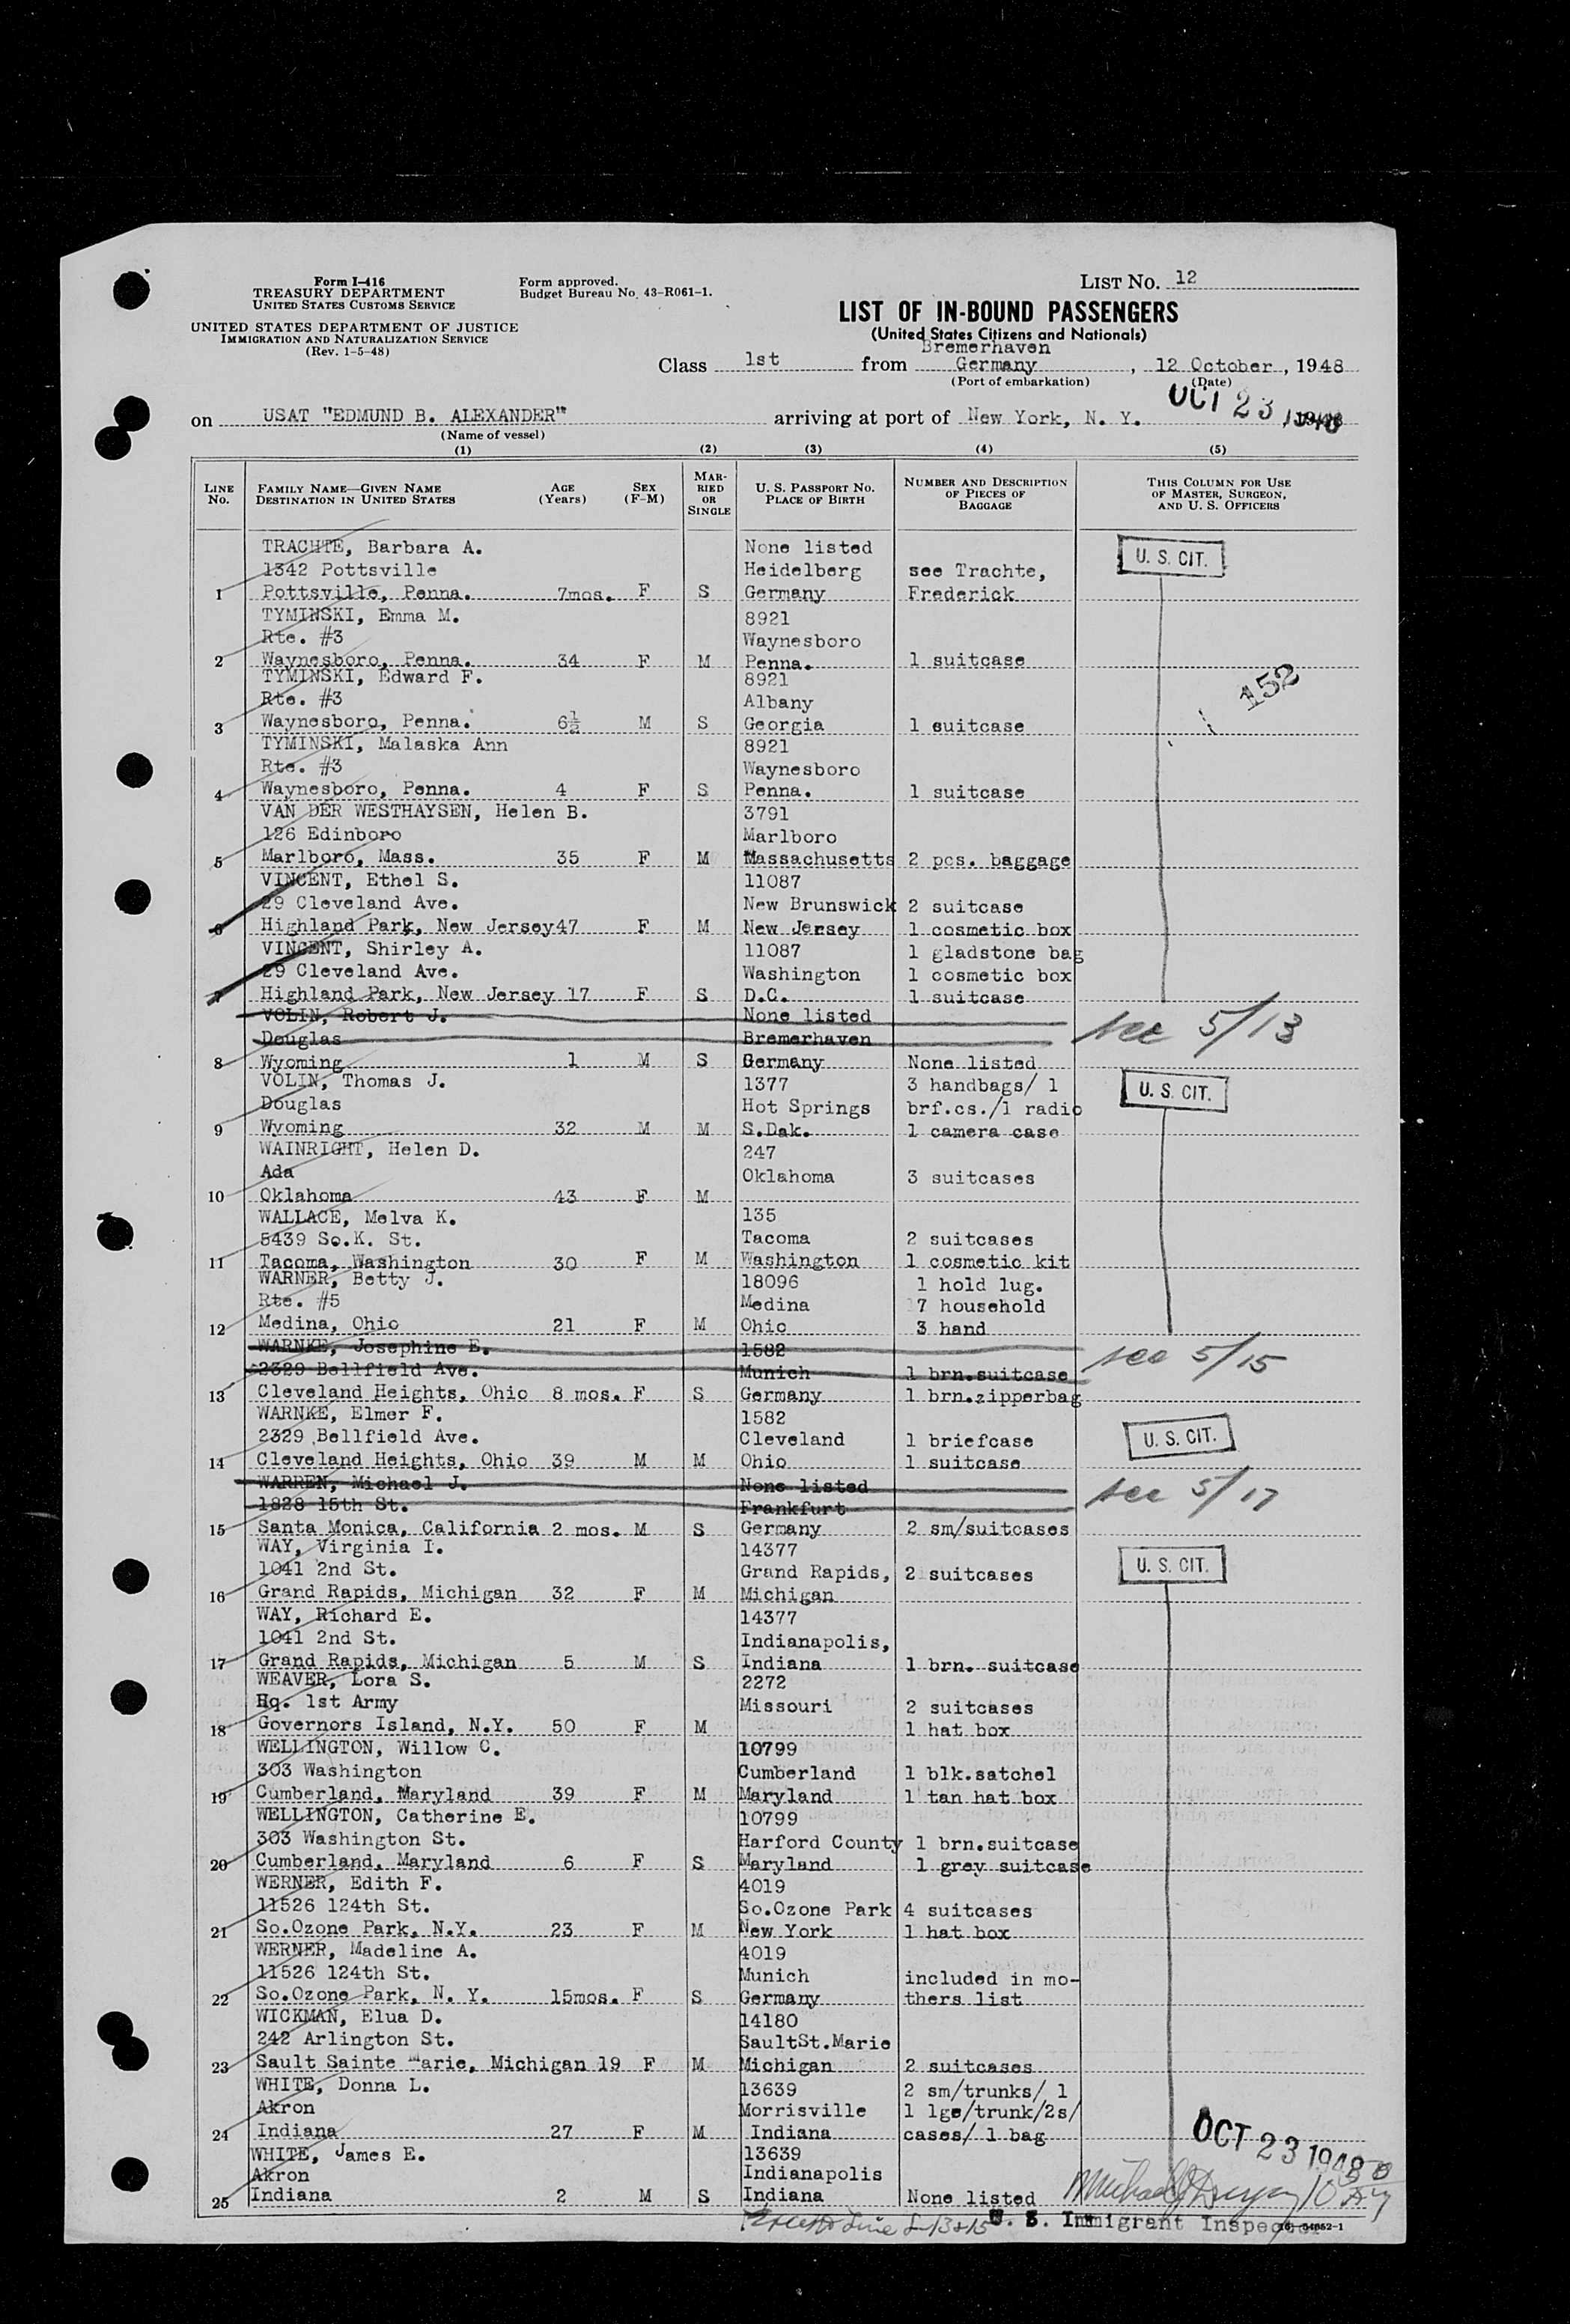 Form I-416
TREASURY DEPARTMENT
UNITED STATES CUSTOMS SERVICE
UNITED STATES DEPARTMENT OF JUSTICE
IMMIGRATION AND NATURALIZATION SERVICE
(Rev. 1-5-48)
Form approved.
Budget Bureau No. 43-R061-1.
LIST NO. 12
LIST OF IN-BOUND PASSENGERS
(United States Citizens and Nationals)
Bremerhaven
Class 1st from Germany, 12 October, 1948
(Port of embarkation) (Date)
OCT 23 1948
on USAT "EDMUND B. ALEXANDER" arriving at port of New York, N. Y.
(Name of vessel)
(1) (2) (3) (4) (5)
LINE NO. FAMILY NAME—GIVEN NAME DESTINATION IN UNITED STATES AGE (Years) SEX (F-M) MARRIED OR SINGLE U. S. PASSPORT NO. PLACE OF BIRTH NUMBER AND DESCRIPTION OF PIECES OF BAGGAGE THIS COLUMN FOR USE OF MASTER, SURGEON, AND U. S. OFFICERS
TRACHTE, Barbara A. None listed U. S. CIT.
1342 Pottsville Heidelberg see Trachte,
1 Pottsville, Penna. 7mos. F S Germany Frederick
TYMINSKI, Emma M. 8921
Rte. #3 Waynesboro
2 Waynesboro, Penna. 34 F M Penna. 1 suitcase
TYMINSKI, Edward F. 8921 152
Rte. #3 Albany
3 Waynesboro, Penna. 6½ M S Georgia 1 suitcase
TYMINSKI, Malaska Ann 8921
Rte. #3 Waynesboro
4 Waynesboro, Penna. 4 F S Penna. 1 suitcase
VAN DER WESTHAYSEN, Helen B. 3791
126 Edinboro Marlboro
5 Marlboro, Mass. 35 F M Massachusetts 2 pcs. baggage
VINCENT, Ethel S. 11087
29 Cleveland Ave. New Brunswick 2 suitcase
6 Highland Park, New Jersey 47 F M New Jersey 1 cosmetic box
VINCENT, Shirley A. 11087 1 gladstone bag
29 Cleveland Ave. Washington 1 cosmetic box
7 Highland Park, New Jersey 17 F S D.C. 1 suitcase
VOLIN, Robert J. None listed see 5/13
Douglas Bremerhaven
8 Wyoming 1 M S Germany None listed
VOLIN, Thomas J. 1377 3 handbags/ 1 U. S. CIT.
Douglas Hot Springs brf.cs./1 radio
9 Wyoming 32 M M S.Dak. 1 camera case
WAINRIGHT, Helen D. 247
Ada Oklahoma 3 suitcases
10 Oklahoma 43 F M
WALLACE, Melva K. 135
5439 So.K. St. Tacoma 2 suitcases
11 Tacoma, Washington 30 F M Washington 1 cosmetic kit
WARNER, Betty J. 18096 1 hold lug.
Rte. #5 Medina 7 household
12 Medina, Ohio 21 F M Ohio 3 hand
WARNKE, Josephine E. 1582 see 5/15
2329 Bellfield Ave. Munich 1 brn.suitcase
13 Cleveland Heights, Ohio 8 mos. F S Germany 1 brn.zipperbag
WARNKE, Elmer F. 1582
2329 Bellfield Ave. Cleveland 1 briefcase U. S. CIT.
14 Cleveland Heights, Ohio 39 M M Ohio 1 suitcase
WARREN, Michael J. None listed see 5/17
1828 15th St. Frankfurt
15 Santa Monica, California 2 mos. M S Germany 2 sm/suitcases
WAY, Virginia I. 14377 U. S. CIT.
1041 2nd St. Grand Rapids, 2 suitcases
16 Grand Rapids, Michigan 32 F M Michigan
WAY, Richard E. 14377
1041 2nd St. Indianapolis,
17 Grand Rapids, Michigan 5 M S Indiana 1 brn. suitcase
WEAVER, Lora S. 2272
Hq. 1st Army Missouri 2 suitcases
18 Governors Island, N.Y. 50 F M 1 hat box
WELLINGTON, Willow C. 10799
303 Washington Cumberland 1 blk.satchel
19 Cumberland, Maryland 39 F M Maryland 1 tan hat box
WELLINGTON, Catherine E. 10799
303 Washington St. Harford County 1 brn.suitcase
20 Cumberland, Maryland 6 F S Maryland 1 grey suitcase
WERNER, Edith F. 4019
11526 124th St. So.Ozone Park 4 suitcases
21 So.Ozone Park, N.Y. 23 F M New York 1 hat box
WERNER, Madeline A. 4019
11526 124th St. Munich included in mo-
22 So.Ozone Park, N. Y. 15mos. F S Germany thers list
WICKMAN, Elua D. 14180
242 Arlington St. SaultSt.Marie
23 Sault Sainte Marie, Michigan 19 F M Michigan 2 suitcases
WHITE, Donna L. 13639 2 sm/trunks/ 1
Akron Morrisville 1 lge/trunk/2s/
24 Indiana 27 F M Indiana cases/ 1 bag OCT 23 1948
WHITE, James E. 13639
Akron Indianapolis
25 Indiana 2 M S Indiana None listed
Except Line 8-13+15 U. S. Immigrant Inspector